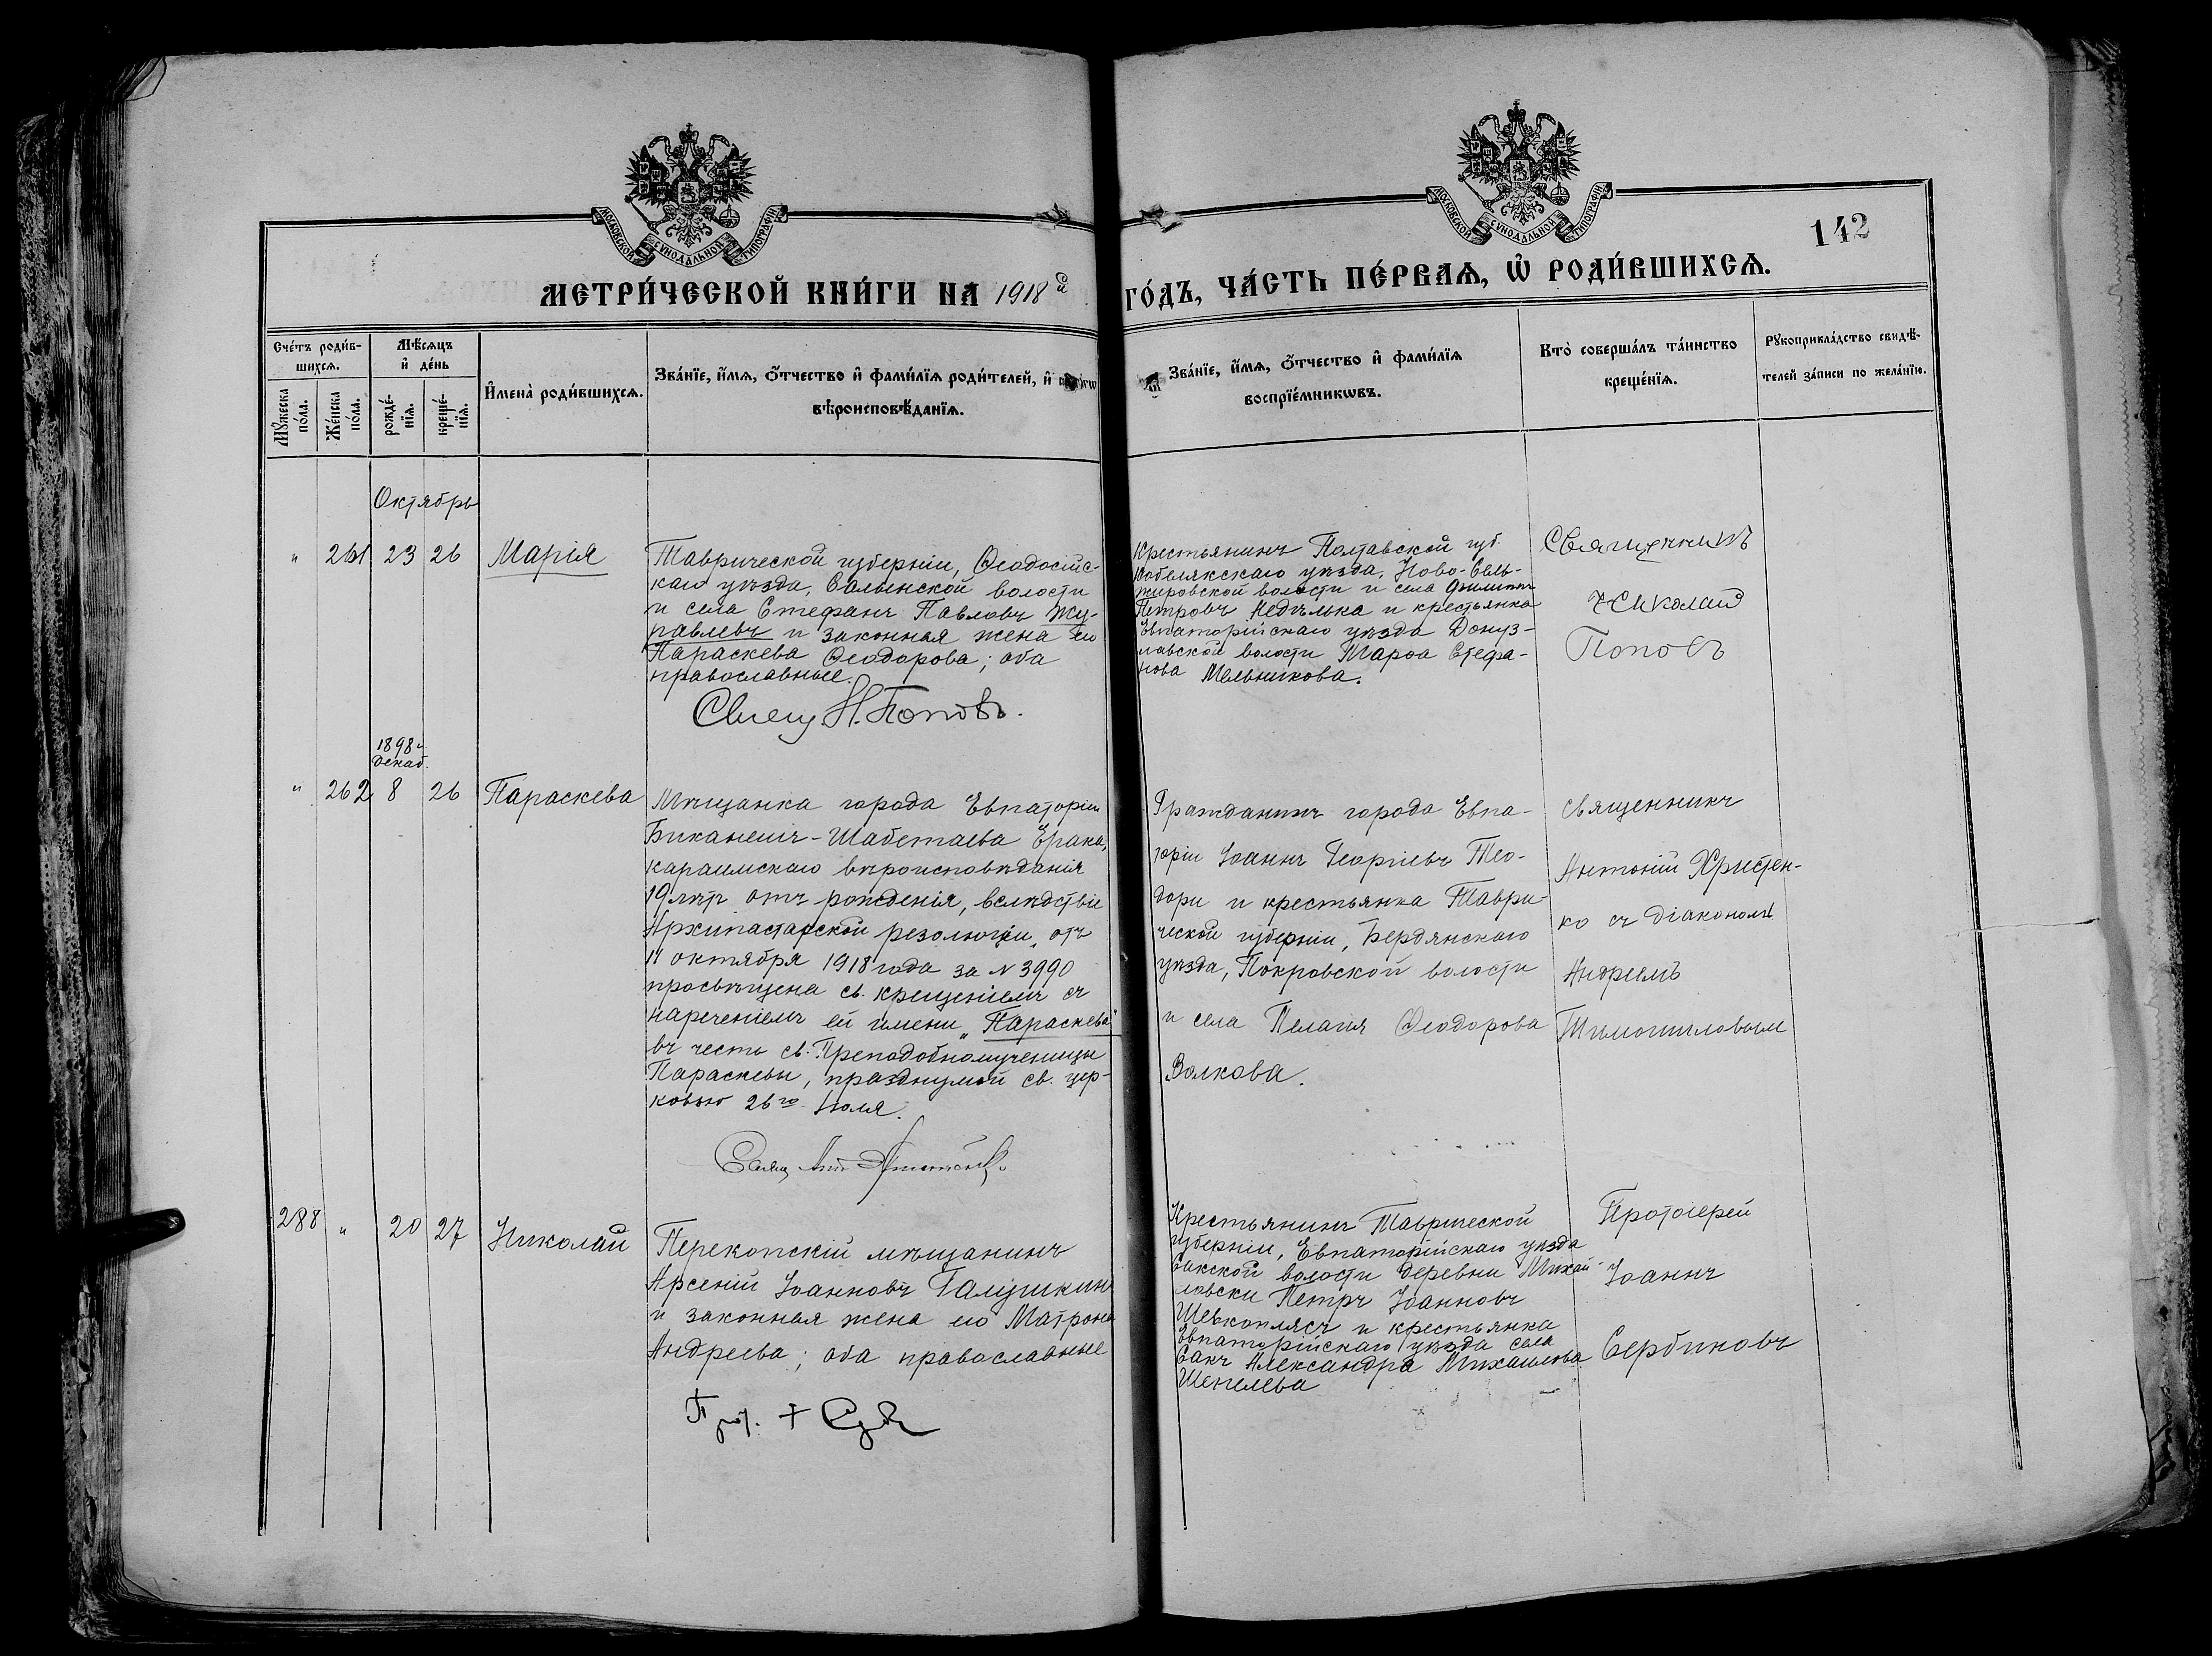 МОСКОВСКОЙ СѴНОДАЛЬНОЙ ТИПОГРАФІИ
МОСКОВСКОЙ СѴНОДАЛЬНОЙ ТИПОГРАФІИ
142
МЕТРИ́ЧЕСКОЙ КНИ́ГИ НА 1918 й
ГО́ДЪ, ЧА́СТЬ ПЕ́РВАѦ, Ѡ РОДИ́ВШИХСѦ.
Сче́тъ роди́в-
шихсѧ.
Мꙋжеска по́ла.
Же́нска по́ла.
Мѣ́сѧцъ
и҆ де́нь
рожде́-
нїѧ.
креще́-
нїѧ.
И҆мена̀ роди́вшихсѧ.
Зва́нїе, и҆́мѧ, ѻ҆́тчество и҆ фами́лїѧ роди́телей, и҆
вѣроисповѣ́данїѧ.
Зва́нїе, и҆́мѧ, ѻ҆́тчество и҆ фами́лїѧ
воспрїе́мникѡвъ.
Кто̀ соверша́лъ та́инство
креще́нїѧ.
Рꙋкоприкла́дство свидѣ́-
телей за́писи по жела́нїю.
Октябрь
" 261 23 26 Марія
Таврической губерніи, Ѳеодосійс-
каго уѣзда, Салынской волости
и села Стефанъ Павловъ Жу-
равлевъ и законная жена его
Параскева Ѳеодорова; оба
православные.
Свящ. Н. Поповъ.
Крестьянинъ Полтавской губ.
Кобелякскаго уѣзда, Ново-Сель-
жировской волости и села Филиппъ
Петровъ Недѣлька и крестьянка
Евпаторійскаго уѣзда Донуз-
лавской волости Марѳа Стефа-
нова Мельникова.
Священникъ
Николай
Поповъ
1898 г.
Декаб.
" 262 8 26 Параскева
Мѣщанка города Евпаторіи
Биканешъ-Шабетаева Ерака,
караимскаго вѣроисповѣданія
19 лѣтъ отъ рожденія, вслѣдствіе
Архипастарской резолюціи, отъ
11 октября 1918 года за N 3990
просвѣщена св. крещеніемъ съ
нареченіемъ ей имени "Параскева"
въ честь св. Преподобномученицы
Параскевы, празднуемой св. цер-
ковью 26го Іюля.
Гражданинъ города Евпа-
торіи Іоаннъ Георгіевъ Тео-
дори и крестьянка Таври-
ческой губерніи, Бердянскаго
уѣзда, Покровской волости
и села Пелагія Ѳеодорова
Волкова.
Священникъ
Антоній Христен-
ко съ діакономъ
Андреемъ
Тимошиловым
288 " 20 27 Николай
Перекопскій мѣщанинъ
Арсеній Іоанновъ Галушкинъ
и законная жена его Матрона
Андреева; оба православные
Прот.
Крестьянинъ Таврической
губерніи, Евпаторійскаго уѣзда
Сакской волости деревни Михай-
ловски Петръ Іоанновъ
Шевкоплясъ и крестьянка
Евпаторійскаго уѣзда села
Сакъ Александра Михаилова
Шепелева
Протоіерей
Іоаннъ
Сербиновъ